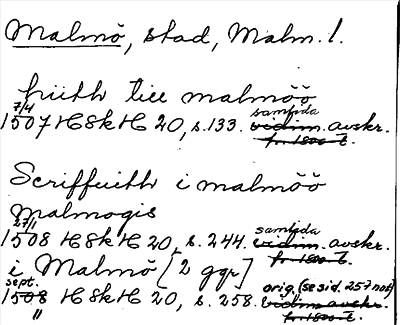 Malmö, stad, Malm. l.
hiith tiil malmöö
7/4 samtida
1507 HSkH 20, s. 133. vidim. avskr.
fr. 1800-t.
Scriffuith i malmöö
Malmogis
27/1 samtida
1508 HSkH 20, s. 244. vidim. avskr.
fr. 1800-t.
i Malmö [2 ggr]
sept. orig. (se sid. 257 not)
1508 HSkH 20, s. 258. vidim avskr.
" fr. 1800-t.